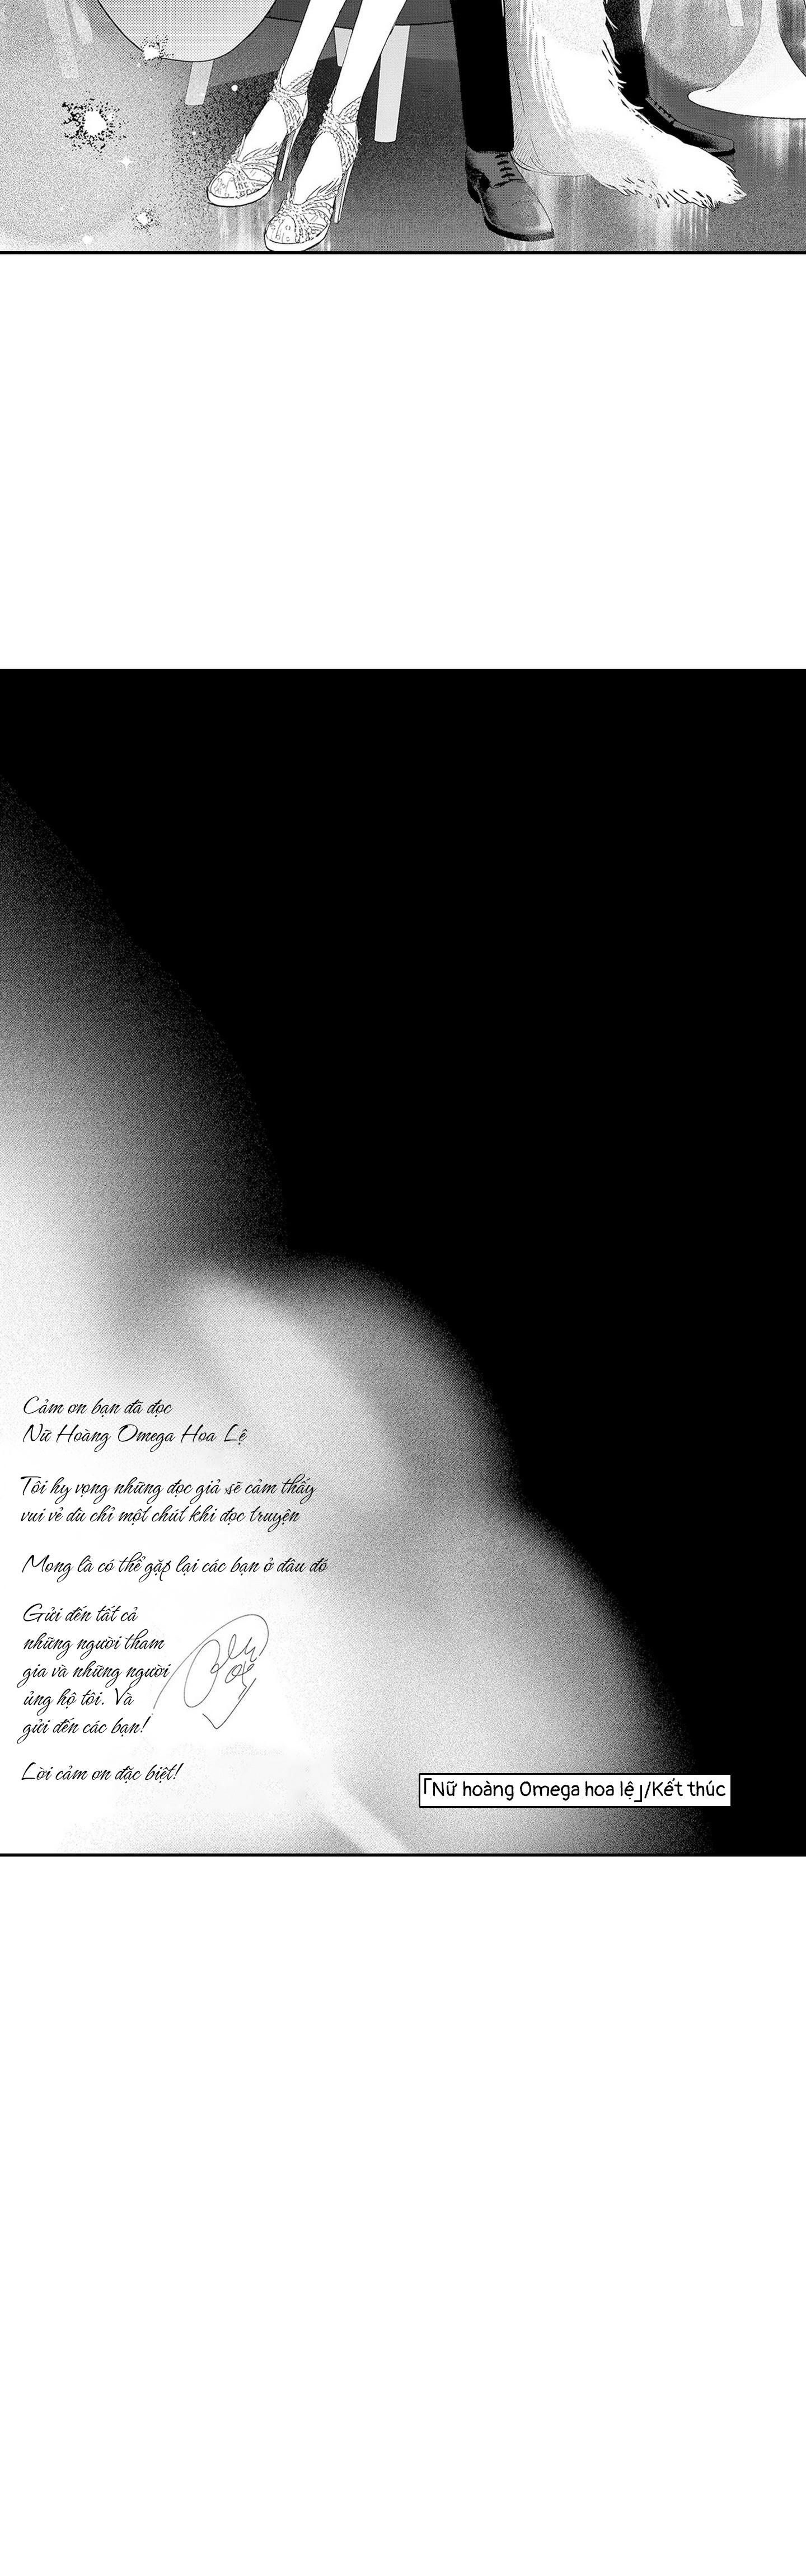 Cảm ơn bạn đã đọc
Nữ Hoàng Omega Hoa Lệ
Tôi hy vọng những đọc giả sẽ cảm thấy
vui vẻ dù chỉ một chút khi đọc truyện
Mong là có thể gặp lại các bạn ở đâu đó
Gửi đến tất cả
những người tham
gia và những người
ủng hộ tôi. Và
gửi đến các bạn!
Lời cảm ơn đặc biệt!
「Nữ hoàng Omega hoa lệ」/Kết thúc